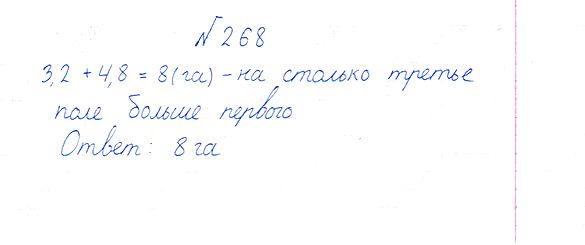 №268
3,2 + 4,8 = 8 (га) – на столько третье
поле больше первого
Ответ: 8 га